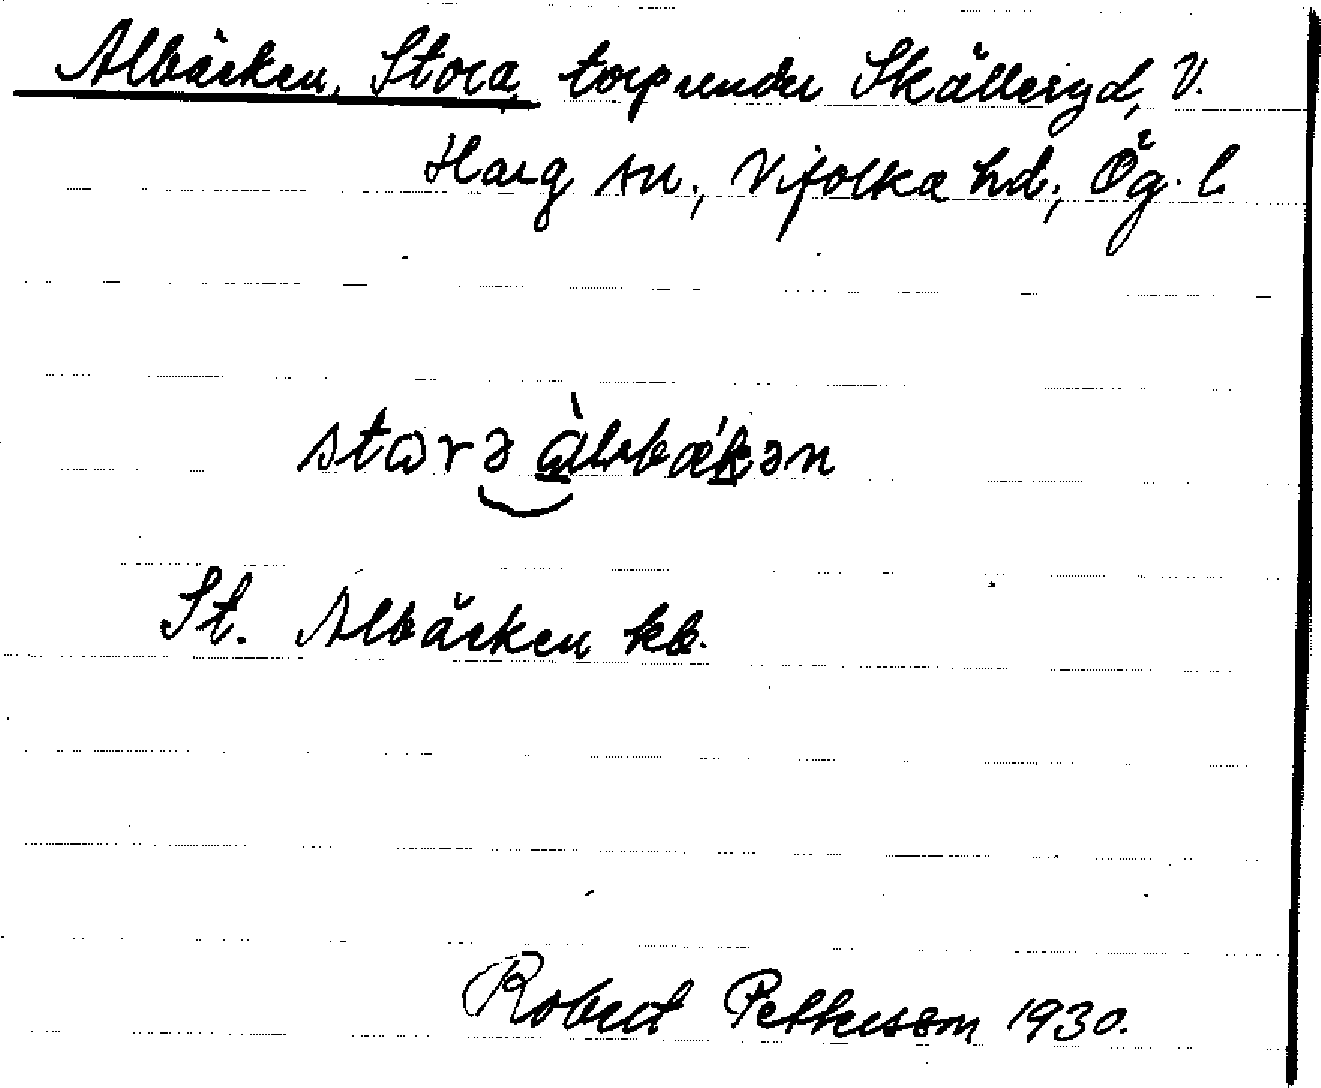 Albäcken, Stora, torp under Skälleryd, V.
Harg sn., Vifolka hd., Ög. l.
storə àlbbäkən
St. Albäcken kb.
Robert Pettersson 1930.